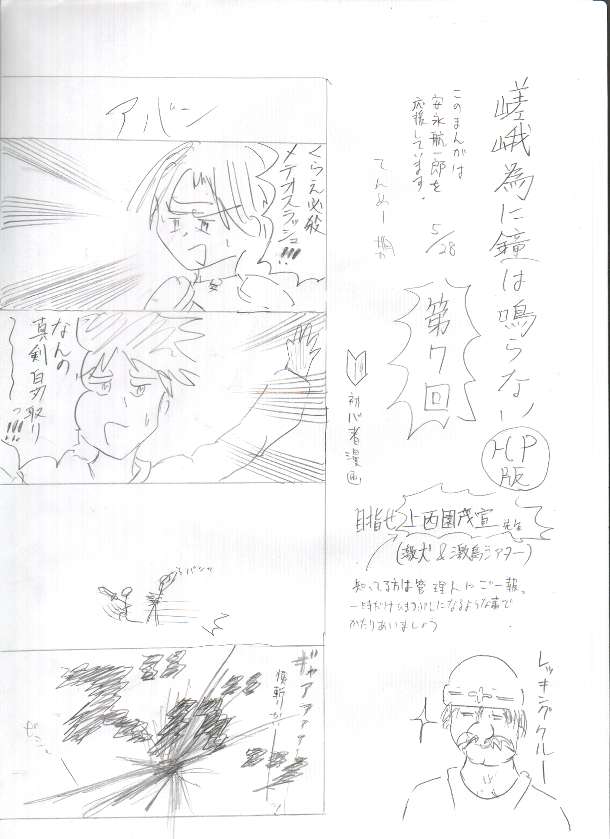 嵯峨為に鐘は鳴らない
HP版
第7回
このまんがは
安永航一郎を
応援しています。
てんめー
5/28
初心者漫画
目指せ上西園茂宣先生
(激犬&激鳥シアター)
知ってる方は管理人にご一報。
かたりあいましょう
レッキングクルー
アバン
くらえ必殺
メテオスラッシュ!!!
なんの
真剣白刃取り
〜〜っ!!!
ギャアアアアー